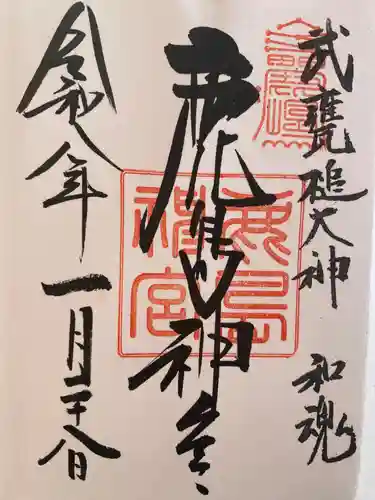 武甕槌大神 和魂
鹿島神宮
鹿島神宮
令和八年一月二十八日